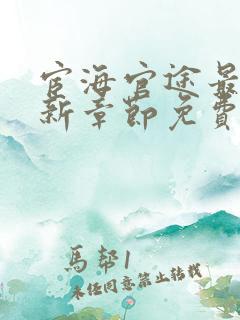 宦海官途最
新章節免費
馬幇1
未经同意禁止转载